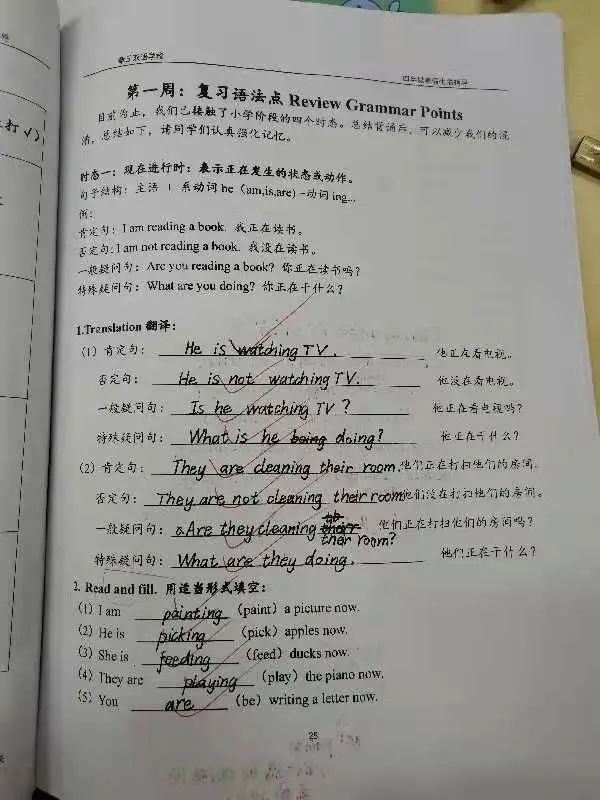 双语学校
第一周：复习语法点 Review Grammar Points
目前为止，我们已接触了小学阶段的四个时态。总结背诵后，可以减少我们的混
淆，总结如下，请同学们认真强化记忆。
打√)
时态一：现在进行时：表示正在发生的状态或动作。
句子结构：主语 + 系动词 be (am,is,are) +动词 ing...
例：
肯定句：I am reading a book. 我正在读书。
否定句：I am not reading a book. 我没在读书。
一般疑问句：Are you reading a book? 你正在读书吗？
特殊疑问句：What are you doing? 你正在干什么？
1.Translation 翻译：
(1) 肯定句：He is watching TV. 他正在看电视。
否定句：He is not watching TV. 他没在看电视。
一般疑问句：Is he watching TV? 他正在看电视吗？
特殊疑问句：What is he being doing? 他正在干什么？
(2) 肯定句：They are cleaning their room. 他们正在打扫他们的房间。
否定句：They are not cleaning their room 他们没在打扫他们的房间。
一般疑问句：Are they cleaning 他们正在打扫他们的房间吗？
their room?
特殊疑问句：What are they doing. 他们正在干什么？
2. Read and fill. 用适当形式填空：
(1) I am painting (paint) a picture now.
(2) He is picking (pick) apples now.
(3) She is feeding (feed) ducks now.
(4) They are playing (play) the piano now.
(5) You are (be) writing a letter now.
25